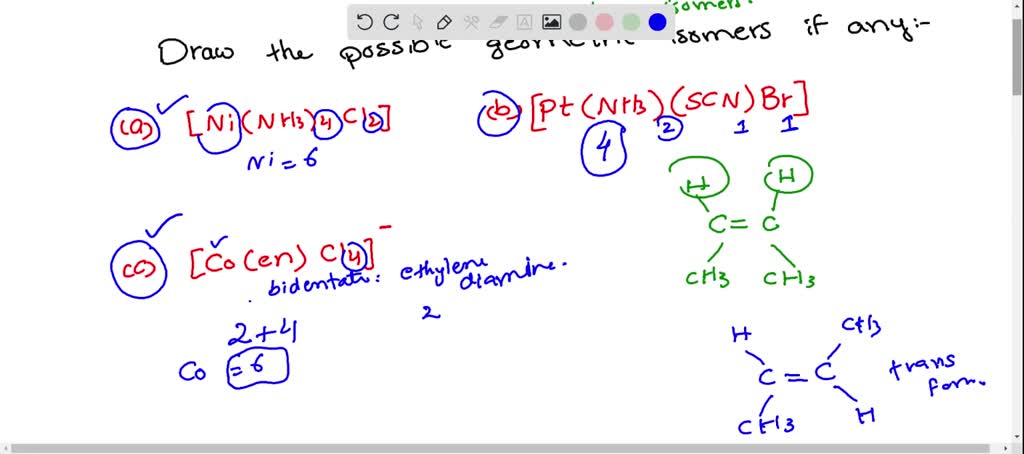 isomers.
Draw the possible geometric isomers if any:-
(a) [Ni(NH3)4Cl2]
Ni = 6
(b) [Pt(NH3)(SCN)Br]
2 1 1
4
H H
C = C
CH3 CH3
(c) [Co(en)Cl4]⁻
bidentate: ethylene diamine.
2
2+4
Co = 6
H CH3
C = C
CH3 H
trans form.